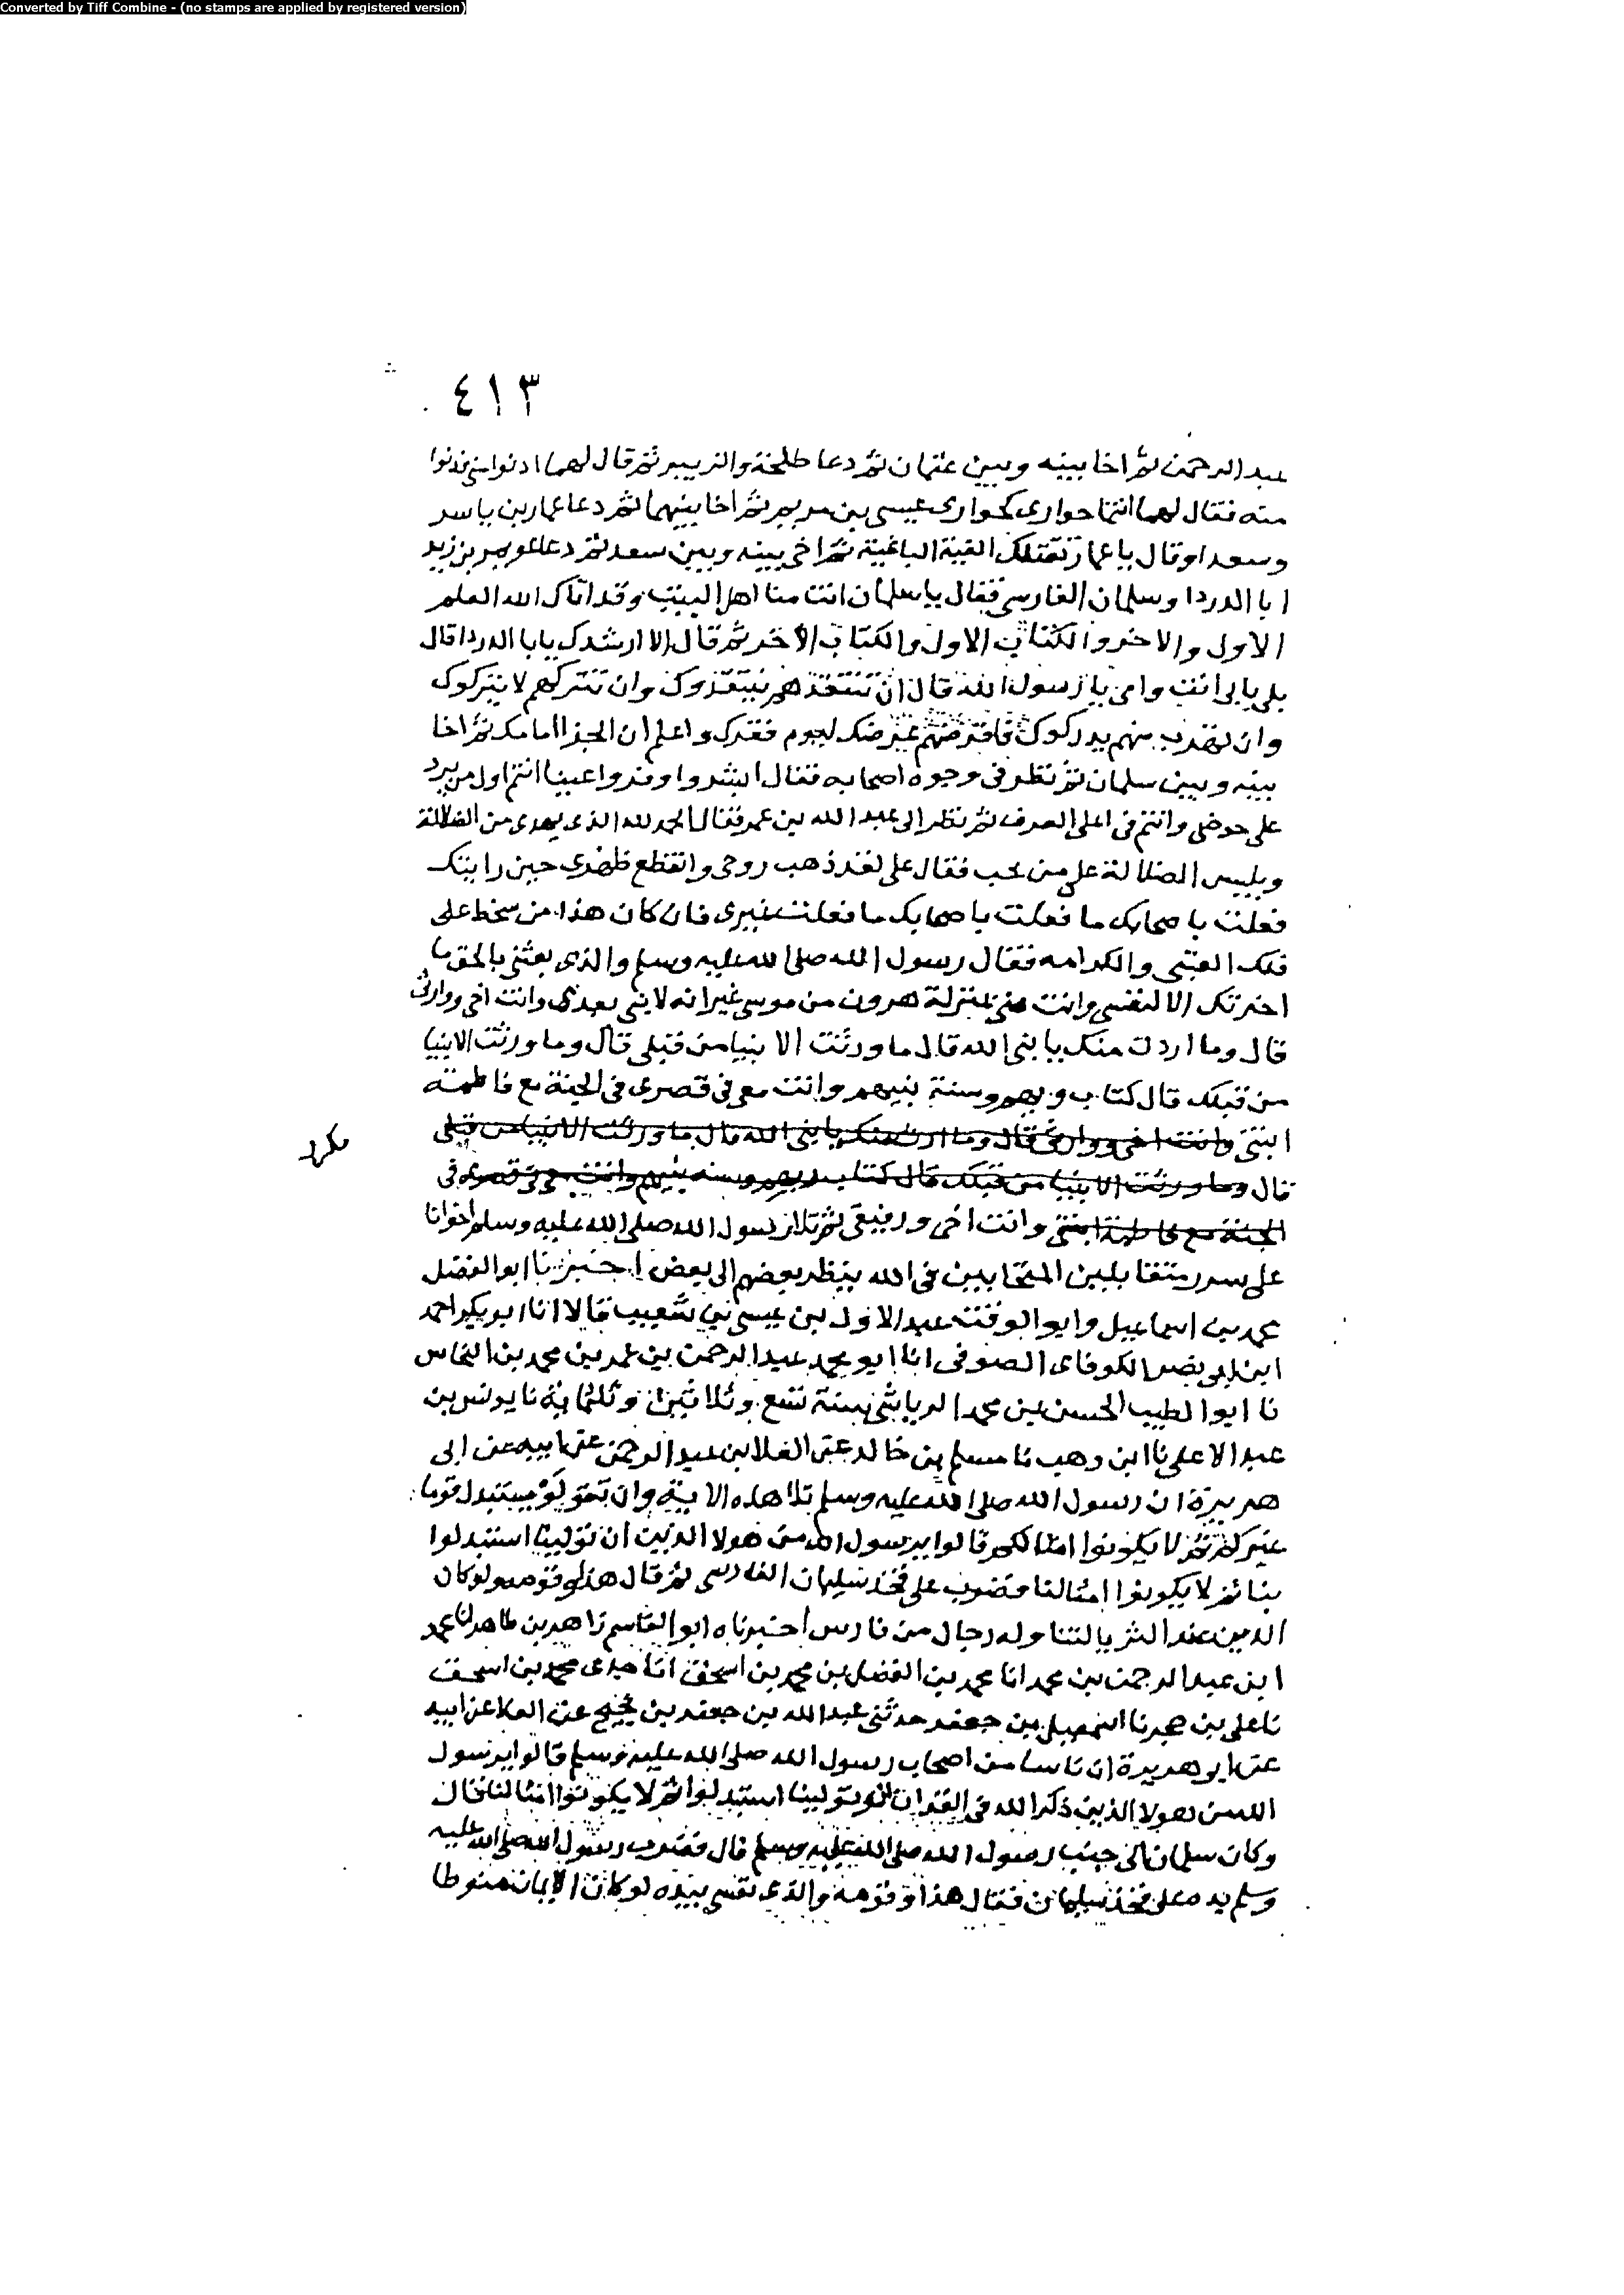 Converted by Tiff Combine - (no stamps are applied by registered version)
٤١٣
عبد الرحمن ثم اخا بينه وبين عثمان ثم دعا طلحة والزبير ثم قال لهما ادنوا مني فدنوا
منه فقال لهما انتما حواري كحواري عيسى بن مريم ثم اخا بينهما ثم دعا عمار بن ياسر
وسعدا وقال يا عمار تقتلك الفية الباغية ثم اخى بينه وبين سعد ثم دعا عويمر بن زيد
ابا الدردا وسلمان الفارسي فقال يا سلمان انت منا اهل البيت وقد اتاك الله العلم
الاول والاخر والكتاب الاول والكتاب الاخر ثم قال الا ارشدك يابا الدردا قال
بلى بابي انت وامي يا رسول الله قال ان تنتقدهم ينتقدوك وان تتركهم لا يتركوك
وان تهرب منهم يدركوك فاقرضهم عرضك ليوم فقرك واعلم ان الجزا امامك ثم اخا
بينه وبين سلمان ثم نظر في وجوه اصحابه فقال ابشروا وقروا عينا انتم اول من يرد
على حوضي وانتم في اعلى الغرف ثم نظر الى عبد الله بن عمر فقال الحمد لله الذي يهدي من الضلالة
ويلبس الضلالة على من يحب فقال علي لقد ذهب روحي وانقطع ظهري حين رايتك
فعلت باصحابك ما فعلت باصحابك ما فعلت غيري فان كان هذا من سخط علي
فلك العتبى والكرامه فقال رسول الله صلى الله عليه وسلم والذي بعثني بالحق ما
اخرتك الا لنفسي وانت مني بمنزلة هرون من موسى غير انه لا نبي بعدي وانت اخي ووارثي
قال وما اردت منك يا نبي الله قال ما ورثت الانبيا من قبلي قال وما ورثت الانبيا
من قبلك قال كتاب ربهم وسنة نبيهم وانت معي في قصري في الجنة مع فاطمة
ابنتي وانت اخي ووارثي قال وما ارث منك يا نبي الله قال ما ورثت الانبيا من قبلي
مكرر
قال وما ورثت الانبيا من قبلك قال كتاب ربهم وسنه نبيهم وانت معي في قصري في
الجنة مع فاطمة ابنتي وانت اخي ورفيقي ثم تلا رسول الله صلى الله عليه وسلم اخوانا
على سرر متقابلين المتحابين في الله ينظر بعضهم الى بعض اخبرنا ابو الفضل
محمد بن اسماعيل وابو الوقت عبد الاول بن عيسى بن شعيب قالا انا ابو بكر احمد
ابن ابي نصر الكوفاني الصوفي انا ابو محمد عبد الرحمن بن عمر بن محمد بن النحاس
نا ابو الطيب الحسن بن محمد الرياشي سنة تسع وثلاثين وثلثماية نا يونس بن
عبد الاعلى نا ابن وهب نا مسلم بن خالد عن العلا بن عبد الرحمن عن ابيه عن ابى
هريرة ان رسول الله صلى الله عليه وسلم تلا هذه الاية وان تتولوا يستبدل قوما
غيركم ثم لا يكونوا امثالكم قالوا يرسول الله من هولا الذين ان تولينا استبدلوا
بنا ثم لا يكونوا امثالنا فضرب على فخذ سليمان الفارسى ثم قال هذا وقومه ولو كان
الدين عند الثريا لتناوله رجال من فارس اخبرناه ابو القاسم زاهر بن طاهر انا محمد
ابن عبد الرحمن بن محمد انا محمد بن الفضل بن محمد بن اسحق انا جدي محمد بن اسحق
نا علي بن حجر نا اسمعيل بن جعفر حدثني عبد الله بن جعفر بن نجيح عن العلا عن ابيه
عن ابي هريرة ان ناسا من اصحاب رسول الله صلى الله عليه وسلم قالوا يرسول
الله من هولا الذين ذكر الله في القران ان تولينا استبدلوا ثم لا يكونوا امثالنا قال
وكان سلمان الى جنب رسول الله صلى الله عليه وسلم قال فضرب رسول الله صلى الله عليه
وسلم يده على فخذ سليمان فقال هذا وقومه والذي نفسي بيده لو كان الايمان منوطا